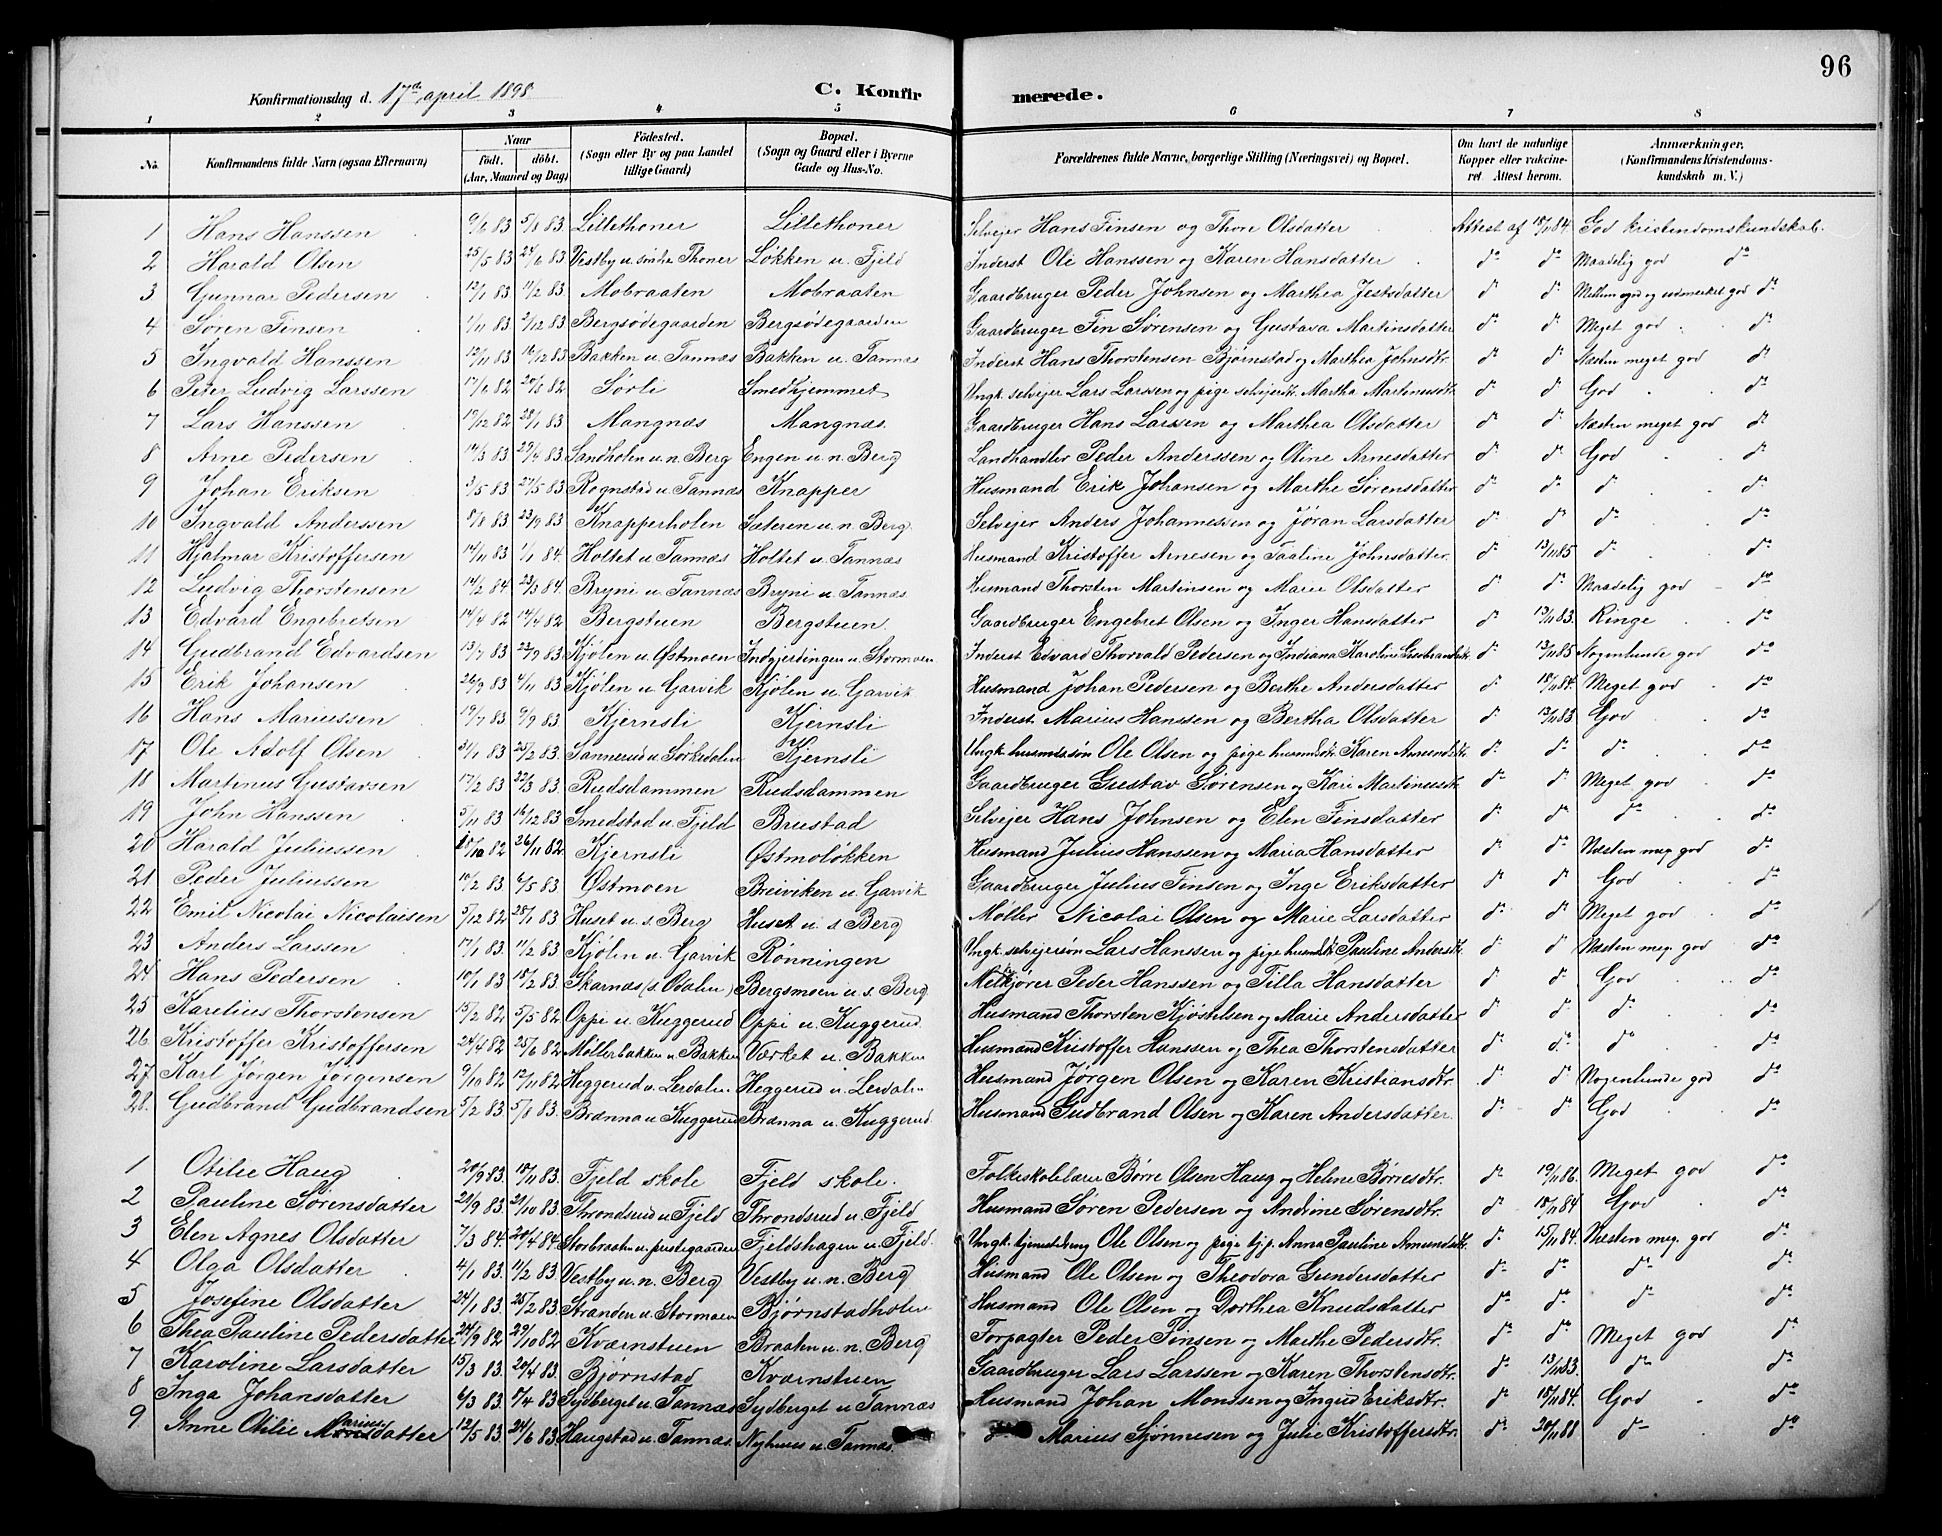 96
Konfirmationsdag d. 17de april 1898
C. Konfirmerede.
1 2 3 4 5 6 7 8
No. Konfirmandens fulde Navn (ogsaa Efternavn) Naar födt. döbt. (Aar, Maaned og Dag) Födested. (Sogn eller By og paa Landet tillige Gaard) Bopæl. (Sogn og Gaard eller i Byerne Gade og Hus-No. Forældrenes fulde Navne, borgerlige Stilling (Næringsvei) og Bopæl. Om havt de naturlige Kopper eller vakcineret Attest herom. Anmærkninger. (Konfirmandens Kristendomskundskab m. V.)
1 Hans Hanssen 9/6 83 5/8 83 Lillethoner Lillethoner Selvejer Hans Finsen og Thon Olsdatter Attest af 18/11 84. God kristendomskundskab.
2 Harald Olsen 25/5 83 24/6 83 Vestby u. söndre Thoner Løkken u. Fjeld Inderst Ole Hanssen og Karen Hansdatter do do Maadelig god do
3 Gunnar Pedersen 12/1 83 11/2 83 Mobraaten Mobraaten Gaardbruger Peder Johnsen og Marthea Jestsdatter do do Mellem god og udmerket god do
4 Sören Finsen 1/11 83 2/12 83 Bergsödegaarden Bergsödegaarden Gaardbruger Fin Sørensen og Gustava Martinsdatter do do Meget god do
5 Ingvald Hanssen 12/11 83 16/12 83 Bakken u. Tannæs Bakken u. Tannæs Inderst Hans Thorstensen Bjørnstad og Marthea Johnsdtr. do do Næsten meget god do
6 Peter Ludvig Larssen 17/6 82 20/8 82 Sørli Smedhjemmet Ungk. selvejer Lars Larssen og pige selvejerdtr. Martha Martinusdtr. do do God do
7 Lars Hanssen 19/12 82 28/1 83 Mangnæs Mangnæs Gaardbruger Hans Larssen og Marthea Olsdatter do do Næsten meget god do
8 Arne Pedersen 14/3 83 29/4 83 Sandholen u. n. Berg Engen u. n. Berg Landhandler Peder Anderssen og Oline Arnesdatter do do God do
9 Johan Eriksen 3/5 83 27/5 83 Rognstad u. Tannæs Knapper Husmand Erik Johansen og Marthe Sørensdatter do do do do
10 Ingvald Anderssen 8/8 83 23/9 83 Knapperholen Sæteren u. n. Berg Selvejer Anders Johannessen og Jøran Larsdatter do do do do
11 Hjalmar Kristoffersen 14/11 83 1/1 84. Holtet u. Tannæs Holtet u. Tannæs Husmand Kristoffer Arnesen og Taaline Johnsdatter. do 13/11 85 do do
12 Ludvig Thorstensen 14/2 84 23/3 84 Bryni u. Tannæs Bryni u. Tannæs Husmand Thorsten Martinsen og Marie Olsdatter do do Maadelig god do
13 Edvard Engebretsen 14/4 82 14/4 82 Bergstuen Bergstuen Gaardbruger Engebret Olsen og Inger Hansdatter do 13/11 83. Ringe do
14 Gudbrand Edvardsen 13/7 83 23/9 83 Kjölen u. Østmoen Indgjerdingen u. Stormoen Inderst Edvard Thorvald Pedersen og Indiana Karoline Gudbrandsdtr. do 13/11 85 Nogenlunde god do
15 Erik Johansen 26/9 83 4/11 83 Kjölen u. Garvik Kjölen u. Garvik Husmand Johan Pedersen og Berthe Andersdatter do 18/11 84. Meget god do
16 Hans Mariussen 19/7 83 9/9 83 Kjernsli Kjernsli Inderst Marius Hanssen og Bertha Olsdatter do 13/11 83 God do
17 Ole Adolf Olsen 31/1 83 25/2 83 Sannerud u. Sørkedalen Kjernsli Ungk. husmdssøn Ole Olsen og pige husmdsdtr. Karen Amundsdtr. do do do do
18 Martinus Gustavsen 17/2 83 22/3 83. Rudsdammen Rudsdammen Gaardbruger Gustav Sørensen og Kari Martinusdtr. do do Meget god do
19 John Hanssen 5/11 83 16/12 83 Smedstad u. Fjeld Brustad Selvejer Hans Johnsen og Elen Finsdatter do do do do
20 Harald Juliussen 18/10 82 26/11 82 Kjernsli Østmoløkken Husmand Julius Hanssen og Maria Hansdatter do do Næsten meg. god do
21 Peder Juliussen 10/2 83 6/5 83 Østmoen Breiviken u. Garvik Gaardbruger Julius Finsen og Inge Eriksdatter do do God do
22 Emil Nicolai Nicolaisen 5/12 82 28/1 83 Huset u. s. Berg Huset u. s Berg Møller Nicolai Olsen og Marie Larsdatter do do Meget god do
23 Anders Larssen 17/1 83. 11/2 83 Kjölen u. Garvik Rønningen Ungk. selvejersøn Lars Hanssen og pige husmdsdtr. Pauline Andersdtr. do do Næsten meg. god do
24 Hans Pedersen 10/1 83 18/2 83. Skarnæs (s. Odalen) Bergsmoen u. s. Berg Melkjører Peder Hanssen og Tilla Hansdatter do do God do
25 Karelius Thorstensen 15/2 82 5/5 82 Oppi u. Kuggerud Oppi u. Kuggerud Husmand Thorsten Kjøstelsen og Marie Andersdatter do do do do
26 Kristoffer Kristoffersen 24/4 82 25/6 82 Møllerbakken u. Bakken Værket u. Bakken Husmand Kristoffer Hanssen og Thea Thorstensdatter do do do do
27 Karl Jörgen Jörgensen 9/10 82 12/11 82 Heggerud u. Lerdalen Heggerud u. Lerdalen Husmand Jørgen Olsen og Karen Kristiansdtr. do do Nogenlunde god do
28. Gudbrand Gudbrandsen 5/2 83 5/8 83. Brænna u. Kuggerud Brænna u. Kuggerud. Husmand Gudbrand Olsen og Karen Andersdatter. do do God do
1 Otilie Haug 20/9 83. 18/11 83. Fjeld skole Fjeld skole. Folkeskolelærer Börre Olsen Haug og Heline Börresdtr. do 19/11 86. Meget god do
2 Pauline Sørensdatter 21/9 83. 21/10 83. Throndsrud u. Fjeld Throndsrud u. Fjeld Husmand Søren Pedersen og Andrine Sørensdtr. do 18/11 84 God do
3 Elen Agnes Olsdatter 7/3 84. 20/4 84. Storbraaten u. prestegaarden Fjeldshagen u. Fjeld. Ungk. Ole Olsen og pige tj.p. Anna Pauline Amundsdtr. do 15/11 84. Næsten meg. god do
4 Olga Olsdatter 4/1 83. 11/2 83. Vestby u. n. Berg Vestby u. n. Berg Husmand Ole Olsen og Theodora Gundersdatter do do do do
5 Josefine Olsdatter 24/1 83. 25/2 83. Stranden u. Stormoen Bjørnstadholen Husmand Ole Olsen og Dorthea Knudsdatter do do do do
6 Thea Pauline Pedersdatter 24/9 82 29/10 82 Kværnstuen Braaten u. n. Berg Forpagter Peder Finsen og Marthe Pedersdtr. do do Meget god do
7 Karoline Larsdatter 15/3 83. 20/4 83. Bjørnstad Kværnstuen Gaardbruger Lars Larssen og Karen Thorstensdtr. do 13/11 83. do do
8 Inga Johansdatter 6/3 83. 8/4 83 Sydberget u. Tannæs Sydberget u. Tannæs Husmand Johan Monssen og Ingrid Eriksdtr. do 18/11 84. God do
9. Anne Otilie Mariusdatter 12/5 83. 24/6 83. Haugstad u. Tannæs. Nyhuus u. Tannæs. do Marius Sjønnesen og Julie Kristoffersdtr. do 20/11 88 do do